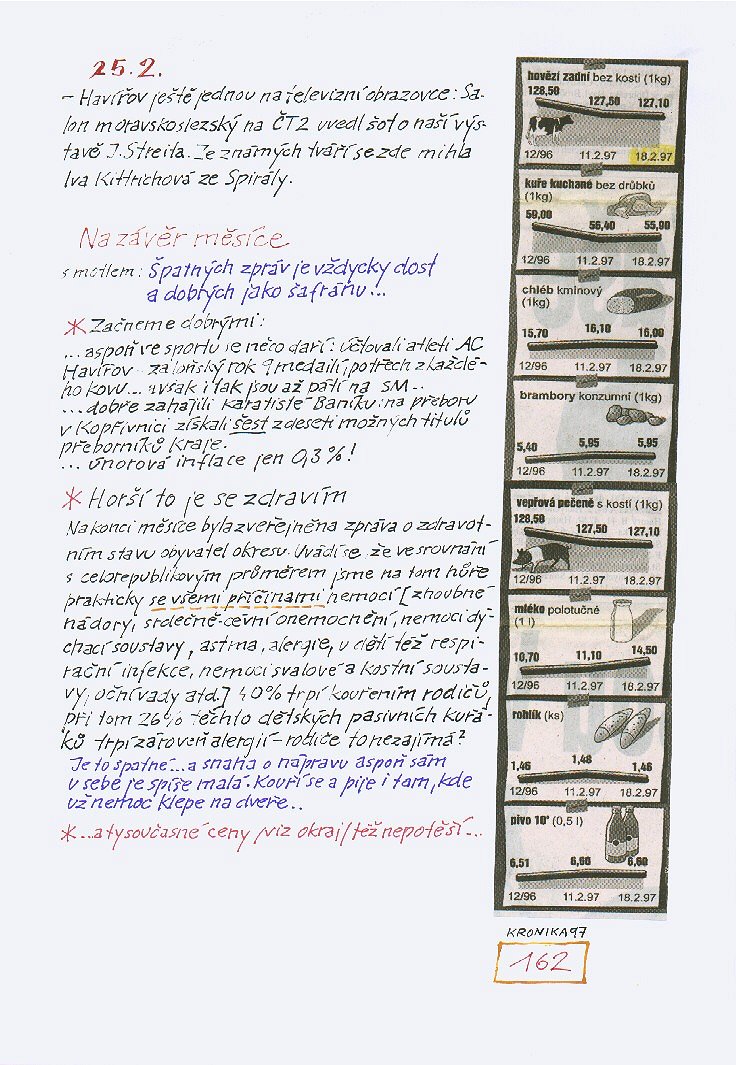 25.2.
– Havířov ještě jednou na televizní obrazovce: Sa-
lon moravskoslezský na ČT2 uvedl šot o naší výs-
tavě J. Streita. Ze známých tváří se zde mihla
Iva Kittrichová ze Spirály.
Na závěr měsíce
s mottem: Špatných zpráv je vždycky dost
a dobrých jako šafránu...
* Začneme dobrými:
...aspoň ve sportu se něco daří: účtovali atleti AC
Havířov - zaloňský rok 9 medailí, po třech z každé-
ho kovu... avšak i tak jsou až pátí na SM...
...dobře zahájili karatisté Baníku: na přeboru
v Kopřivnici získali šest z deseti možných titulů
přeborníků kraje.
... únorová inflace jen 0,3%!
* Horší to je se zdravím
Na konci měsíce byla zveřejněna zpráva o zdravot-
ním stavu obyvatel okresu. Uvádí se, že ve srovnání
s celorepublikovým průměrem jsme na tom hůře
prakticky se všemi příčinami nemocí [zhoubné
nádory, srdečně-cévní onemocnění, nemoci dý-
chací soustavy, astma, alergie, u dětí též respi-
rační infekce, nemoci svalové a kostní sousta-
vy, oční vady atd.] 40% trpí kouřením rodičů,
při tom 26% těchto dětských pasivních kuřá-
ků trpí zároveň alergií - rodiče to nezajímá?
Je to špatné... a snaha o nápravu aspoň sám
v sobě je spíše malá. Kouří se a pije i tam, kde
už nemoc klepe na dveře...
* ...a ty současné ceny /viz okraj/ též nepotěší...
hovězí zadní bez kosti (1kg)
128,50 127,50 127,10
12/96 11.2.97 18.2.97
kuře kuchané bez drůbků
(1kg)
59,00 56,40 55,90
12/96 11.2.97 18.2.97
chléb kmínový
(1kg)
15,70 16,10 16,00
12/96 11.2.97 18.2.97
brambory konzumní (1kg)
5,40 5,95 5,95
12/96 11.2.97 18.2.97
vepřová pečeně s kostí (1kg)
128,50 127,50 127,10
12/96 11.2.97 18.2.97
mléko polotučné
(1 l)
10,70 11,10 14,50
12/96 11.2.97 18.2.97
rohlík (ks)
1,46 1,48 1,46
12/96 11.2.97 18.2.97
pivo 10° (0,5 l)
6,51 6,60 6,60
12/96 11.2.97 18.2.97
KRONIKA97
162